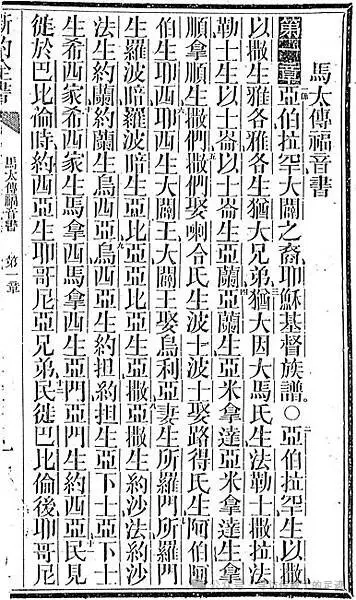 馬太傳福音書
第一章亞伯拉罕大闢之裔耶穌基督族譜。〇亞伯拉罕生以撒
以撒生雅各雅各生猶大兄弟猶大因大馬氏生法勒士撒拉法
勒士生以士崙以士崙生亞蘭亞蘭生亞米拿達亞米拿達生拿
順拿順生撒們撒們娶喇合氏生波士波士娶路得氏生阿伯阿
伯生耶西耶西生大闢王大闢王娶烏利亞妻生所羅門所羅門
生羅波暗羅波暗生亞比亞亞比亞生亞撒亞撒生約沙法約沙
法生約蘭約蘭生烏西亞烏西亞生約担約担生亞下士亞下士
生希西家希西家生馬拿西馬拿西生亞門亞門生約西亞民見
徙於巴比倫時約西亞生耶哥尼亞兄弟民徙巴比倫後耶哥尼
新約全書
馬太傳福音書 第一章